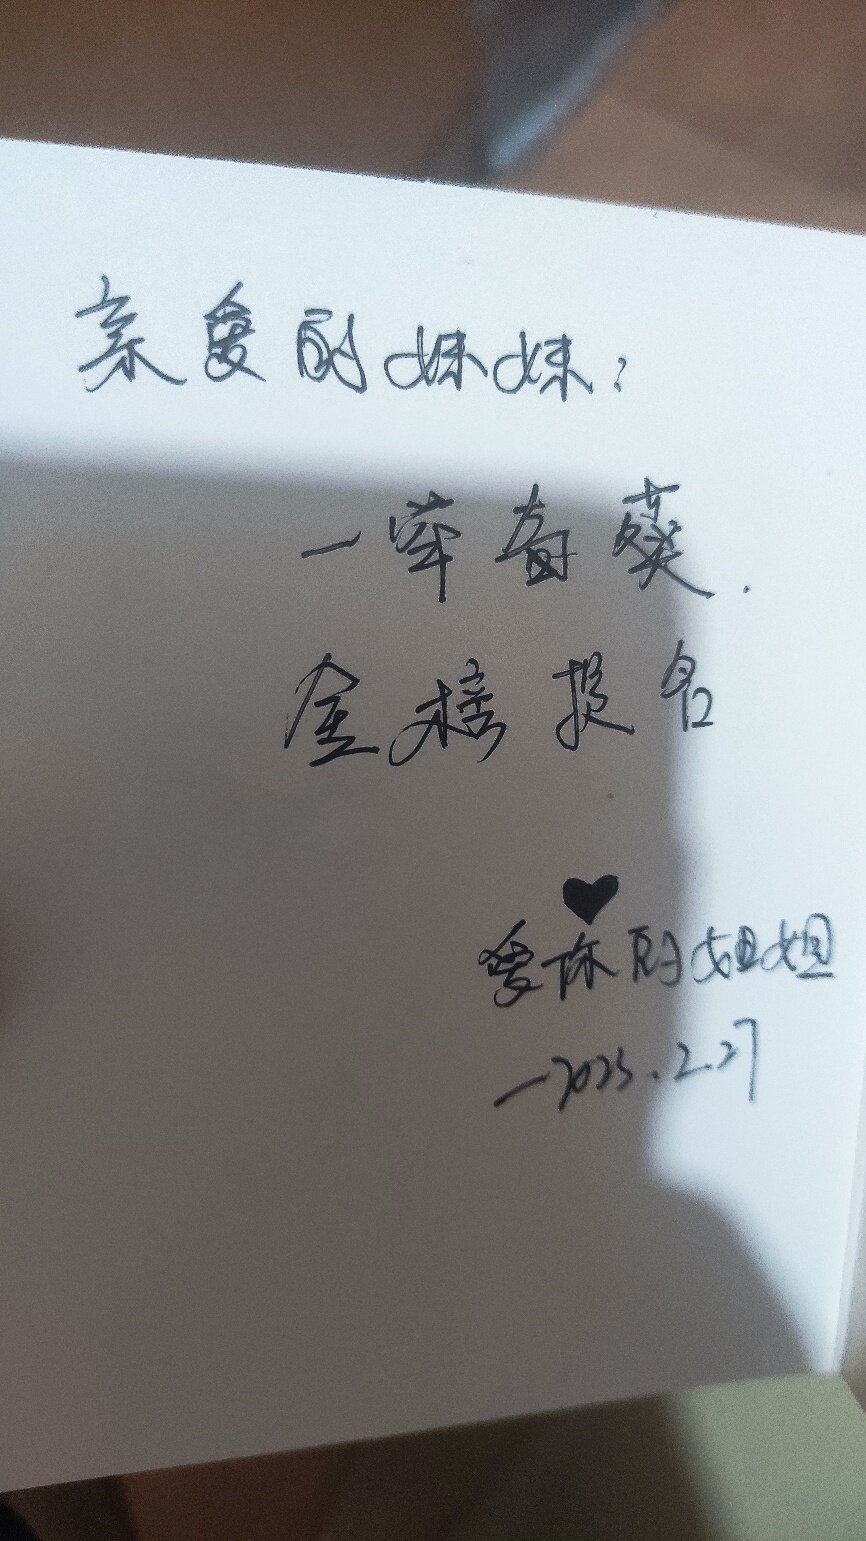 亲爱的妹妹:
一举夺葵.
金榜提名
爱你的姐姐
—2025.2.27